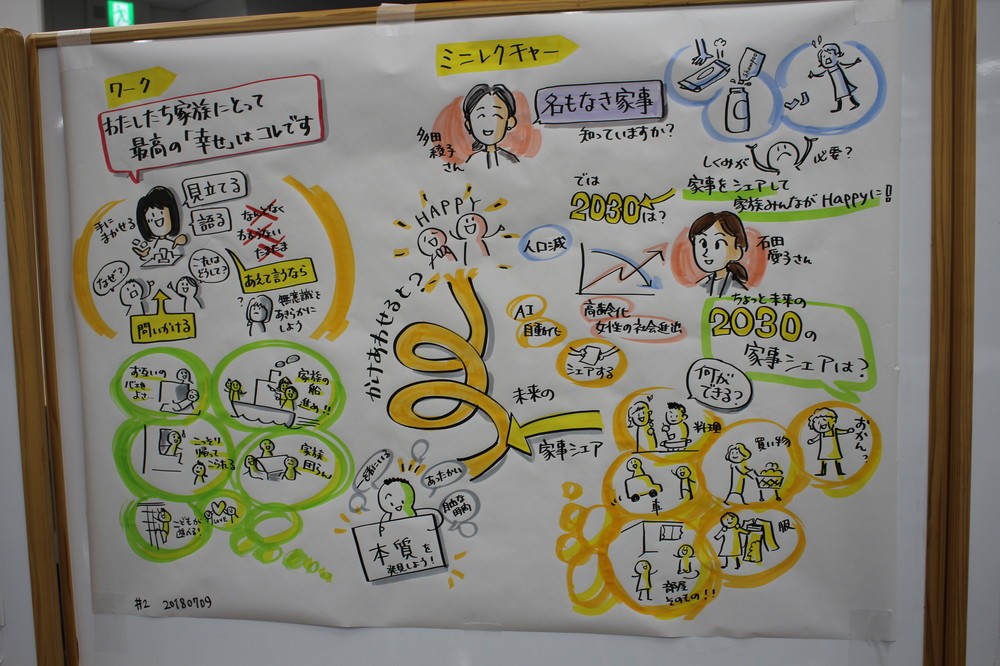 ワーク
わたしたち家族にとって
最高の「幸せ」はコレです
見立てる
語る
手に
まかせる
なんとなく
たまたま
なぜ?
これは
どうして?
あえて言うなら
問いかける
?
無意識を
あきらかに
しよう
お互いの
心地
よさ
家族の
船
進め!!
こっそり
帰って
こられる
家族
団らん
こどもが
遊べる!
LOVE
#2 20180709
ミニレクチャー
多田
綾子
さん
名もなき家事
知っていますか?
Shampoo
しくみが
必要?
家事をシェアして
家族みんながHappyに!!
では
2030は?
HAPPY
人口減
AI
自動化
高齢化
女性の社会進出
シェアする
石田
愛子さん
ちょっと未来の
2030の
家事シェアは?
何が
できる?
かけあわせると?
未来の
家事シェア
一緒にいる
あったかい
自由な
時間
本質を
発見しよう!
料理
買い物
おかん?
車
服
部屋
そのもの!!